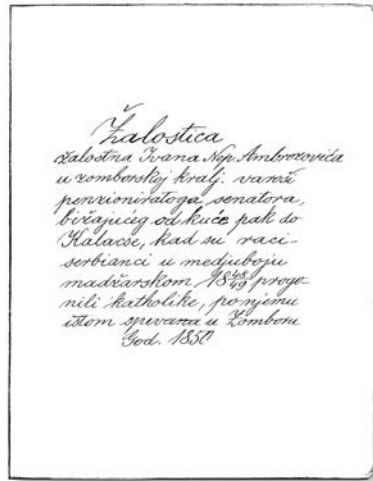 Žalostica
žalostna Ivana Nep. Ambrozovića
u zomborskoj kralj. varoši
penzioniratoga senatora,
bižajućeg od kuće pak do
Kalacse, kad su raci-
serbianci u medjuboju
madžarskom 1848/49 progo-
nili katholike, po njemu
istom spivana u Zomboru
God. 1850